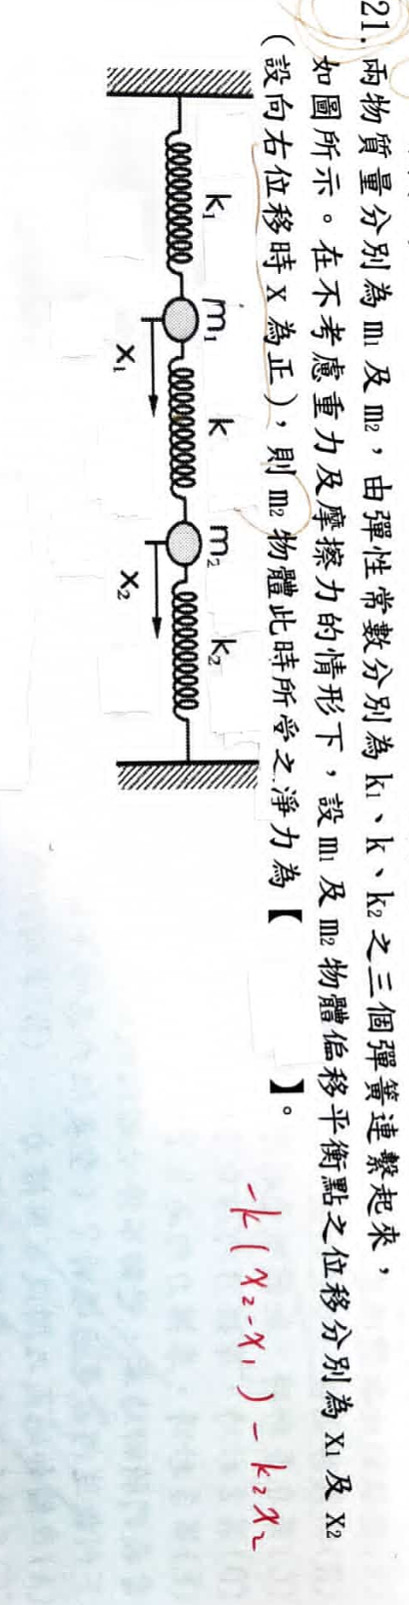 21. 兩物質量分別為 m₁ 及 m₂，由彈性常數分別為 k₁、k、k₂ 之三個彈簧連繫起來，
如圖所示。在不考慮重力及摩擦力的情形下，設 m₁ 及 m₂ 物體偏移平衡點之位移分別為 x₁ 及 x₂
（設向右位移時 x 為正），則 m₂ 物體此時所受之淨力為【 】。
-k(x₂-x₁)-k₂x₂
k₁ m₁ k m₂ k₂
x₁ x₂